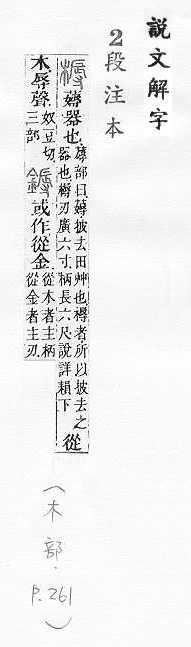 說文解字
2段注本
槈 薅器也 蓐部曰薅披去田艸也槈者所以披去之
器也槈刃廣六寸柄長六尺說詳下 從
木辱聲 奴豆切
三部 鎒 或作從金 從木者主柄
從金者主刃
(木部.P.261)